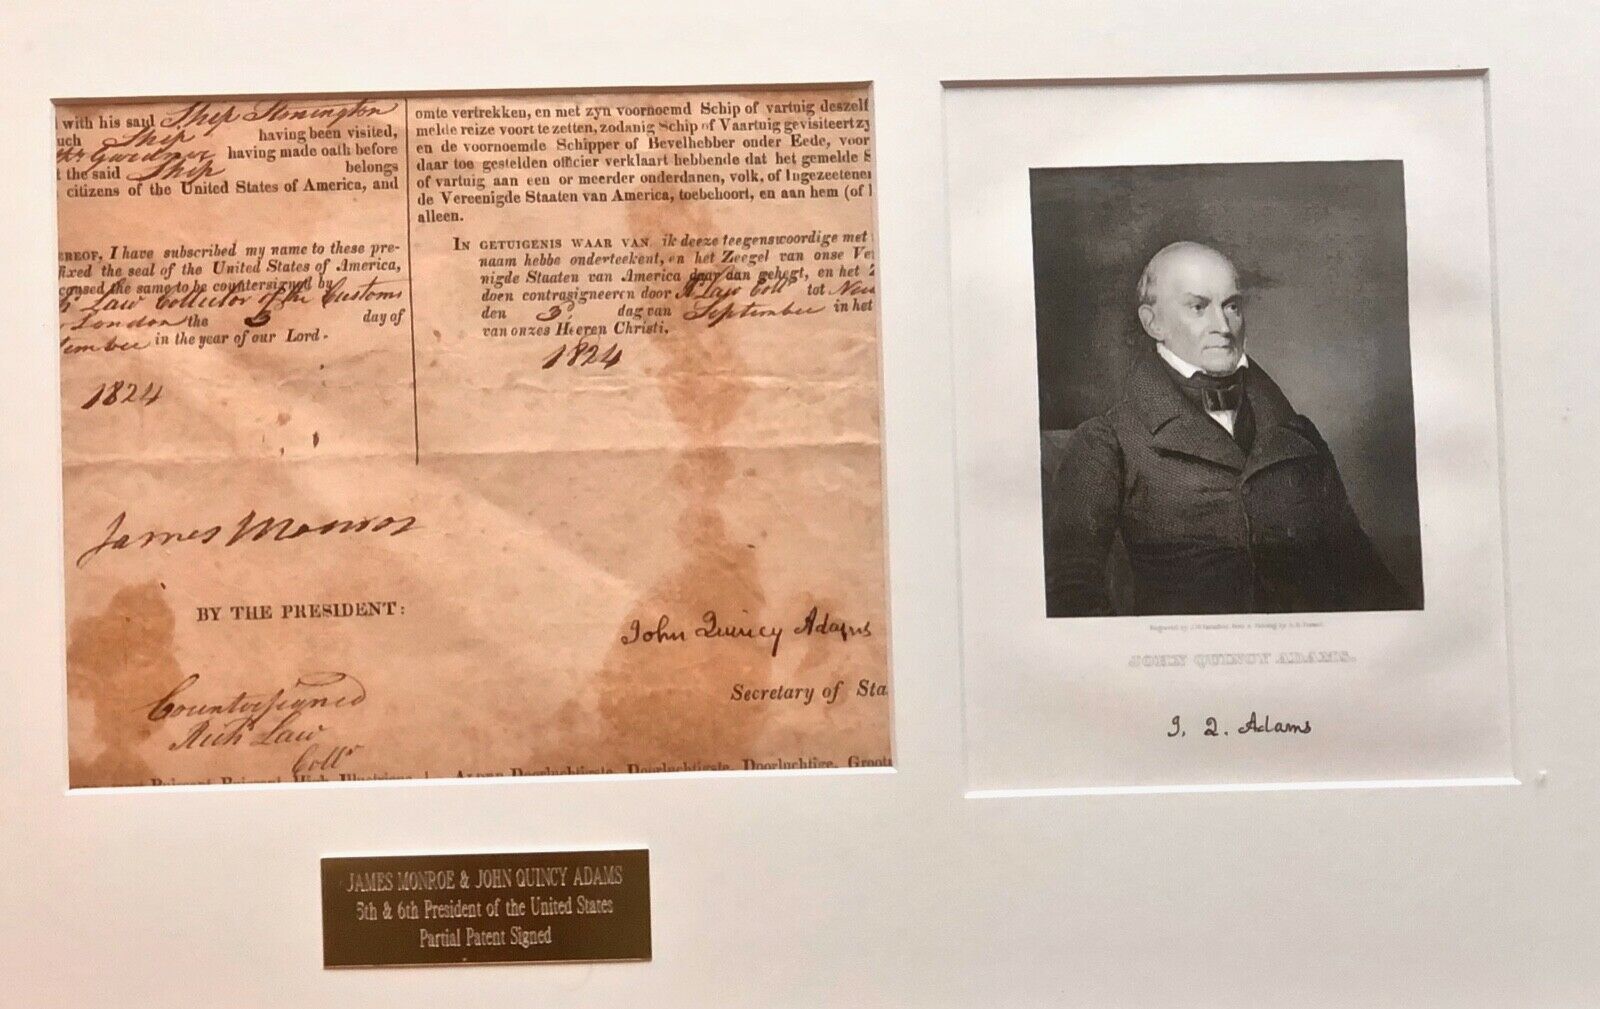 with his said Ship Stonington
uch Ship having been visited,
Gardner having made oath before
t the said Ship belongs
citizens of the United States of America, and
EREOF, I have subscribed my name to these pre-
fixed the seal of the United States of America,
caused the same to be countersigned by
Law Collector of the Customs
London the 3 day of
tember in the year of our Lord.
1824
omte vertrekken, en met zyn voornoemd Schip of vartuig deszelf
melde reize voort te zetten, zodanig Schip of Vaartuig gevisiteert zy
en de voornoemde Schipper of Bevelhebber onder Eede, voor
daar toe gestelden officier verklaart hebbende dat het gemelde S
of vartuig aan een or meerder onderdanen, volk, of Ingezeetenen
de Vereenigde Staaten van America, toebehoort, en aan hem (of
alleen.
IN GETUIGENIS WAAR VAN ik deeze teegenswoordige met
naam hebbe onderteekent, en het Zeegel van onse Ver
nigde Staaten van America daar dan gehegt, en het
doen contrasigneeren door R Law Collr tot New
den 3d, dag van September in het
van onzes Heeren Christi.
1824
James Monroe
BY THE PRESIDENT:
John Quincy Adams
Secretary of Sta
Countersigned
Richd Law
Collr
Doorluchtigste, Doorluchtigste, Doorluchtige, Groot
JOHN QUINCY ADAMS.
J. Q. Adams
JAMES MONROE & JOHN QUINCY ADAMS
5th & 6th President of the United States
Partial Patent Signed